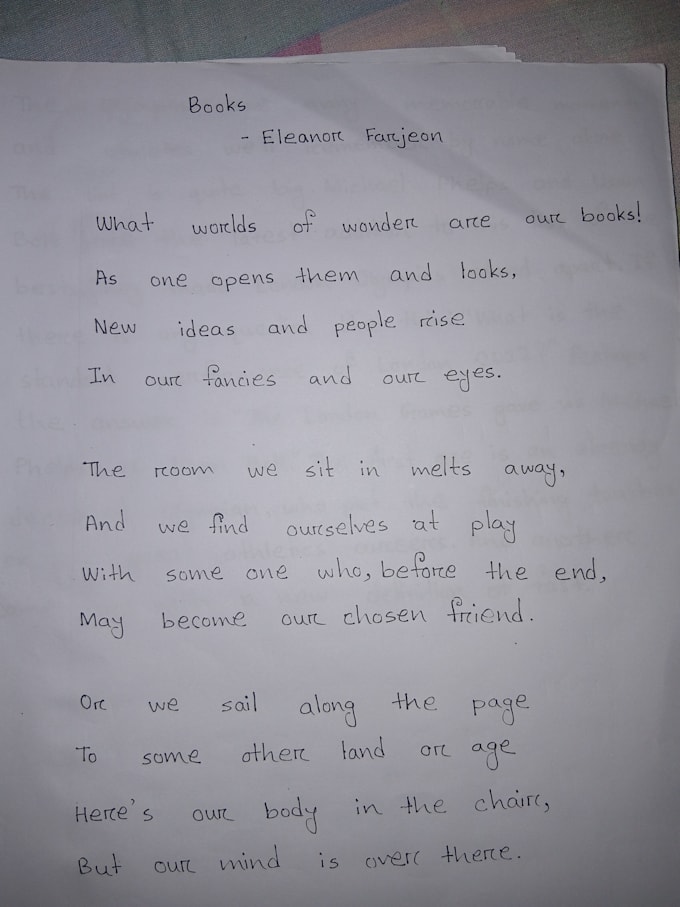 Books
- Eleanor Farjeon
What worlds of wonder are our books!
As one opens them and looks,
New ideas and people rise
In our fancies and our eyes.
The room we sit in melts away,
And we find ourselves at play
With some one who, before the end,
May become our chosen friend.
Or we sail along the page
To some other land or age
Here's our body in the chair,
But our mind is over there.